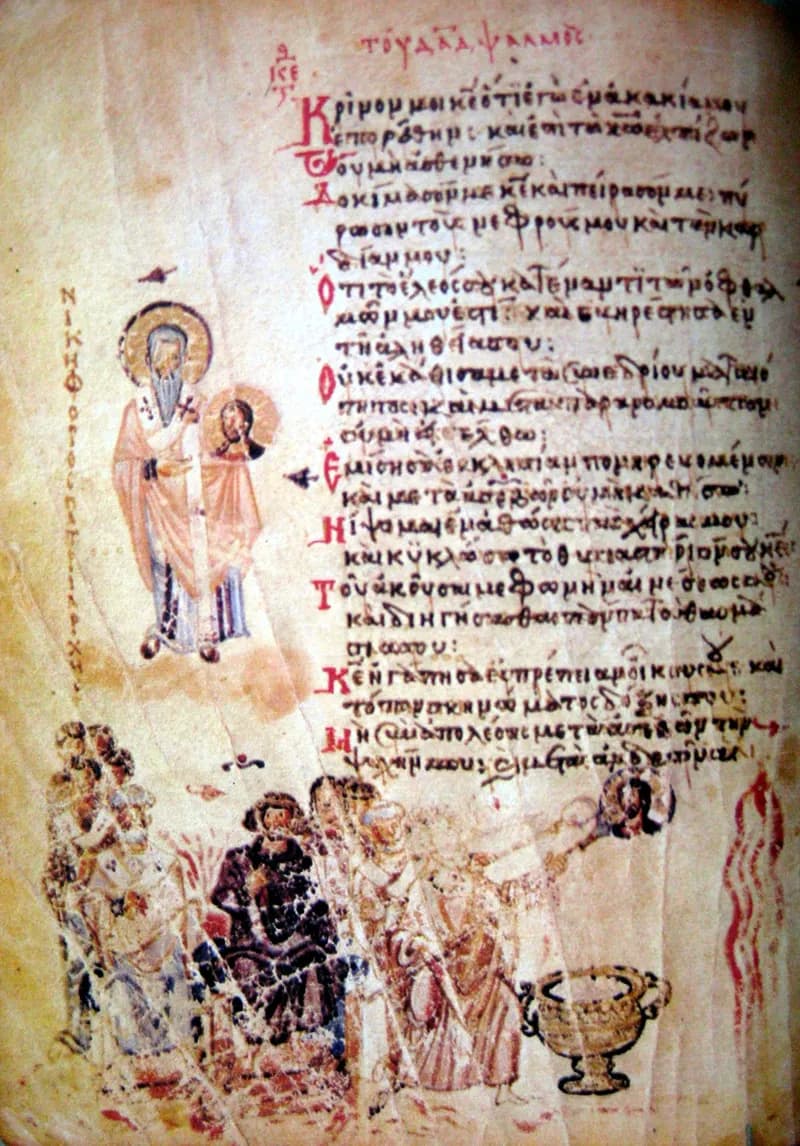 τοῦ δαδ ψαλμός
Κρῖνόν μοι κε ὅτι ἐγὼ ἐν ἀκακία μου
ἐπορεύθην· καὶ ἐπὶ τῶ κω ἐλπίζων
οὐ μὴ ἀσθενήσω:
Δοκίμασόν με κε καὶ πείρασόν με· πύ
ρωσον τοὺς νεφρούς μου καὶ τὴν καρ
δίαν μου:
Ὅτι τὸ ἔλεός σου κατέναντι τῶν ὀφθαλ
μῶν μου ἐστί· καὶ εὐηρέστησα ἐν
τῆ ἀληθεία σου:
Οὐκ ἐκάθισα μετὰ συνεδρίου ματαιό
τητος· καὶ μετὰ παρανομούντων
οὐ μὴ εἰσέλθω:
Ἐμίσησα ἐκκλησίαν πονηρευομένων
καὶ μετὰ ἀσεβῶν οὐ μὴ καθίσω:
Νίψομαι ἐν ἀθώοις τὰς χεῖρας μου:
καὶ κυκλώσω τὸ θυσιαστήριόν σου κε
Τοῦ ἀκοῦσαί με φωνὴν αἰνέσεως
καὶ διηγήσασθαι πάντα τὰ θαυμά
σιά σου:
Κε ἠγάπησα εὐπρέπειαν οἴκου σου· καὶ
τόπον σκηνώματος δόξης σου:
Μὴ συναπολέσης μετὰ ἀσεβῶν τὴν
ψυχήν μου:
ΝΙΚΗΦΟΡΟΣ ΠΑΤΡΙΑΡΧΗΣ